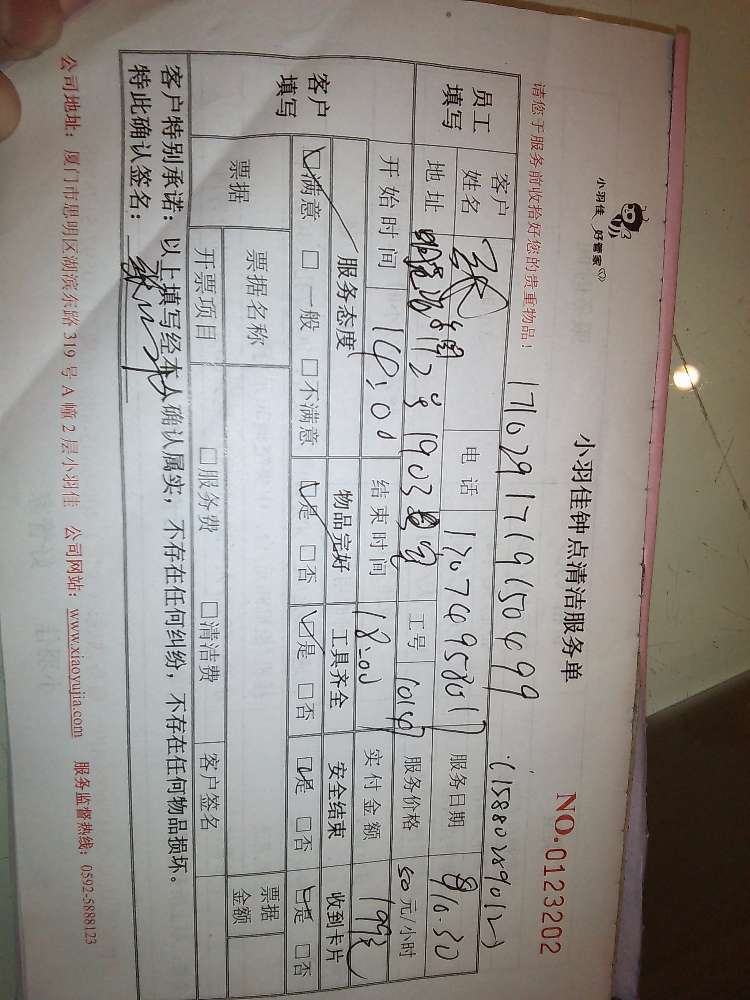 小羽佳
好管家
小羽佳钟点清洁服务单
NO.0123202
请您于服务前收拾好您的贵重物品!
1710291719150499
(15880289012)
员工填写
客户姓名 张 电话 17074958017 服务日期
地址 2号1903室 工号 服务价格 50元/小时
开始时间 14:00 结束时间 18:00 实付金额 199元
客户填写
服务态度 物品完好 工具齐全 安全结束 收到卡片
☑满意 □一般 □不满意 ☑是 □否 ☑是 □否 ☑是 □否 ☑是 □否
票据 票据名称 票据金额
开票项目 □服务费 □清洁费 客户签名
客户特别承诺:以上填写经本人确认属实,不存在任何纠纷,不存在任何物品损坏。
特此确认签名:
公司地址:厦门市思明区湖滨东路319号A幢2层小羽佳 公司网站:www.xiaoyujia.com 服务监督热线:0592-5888123